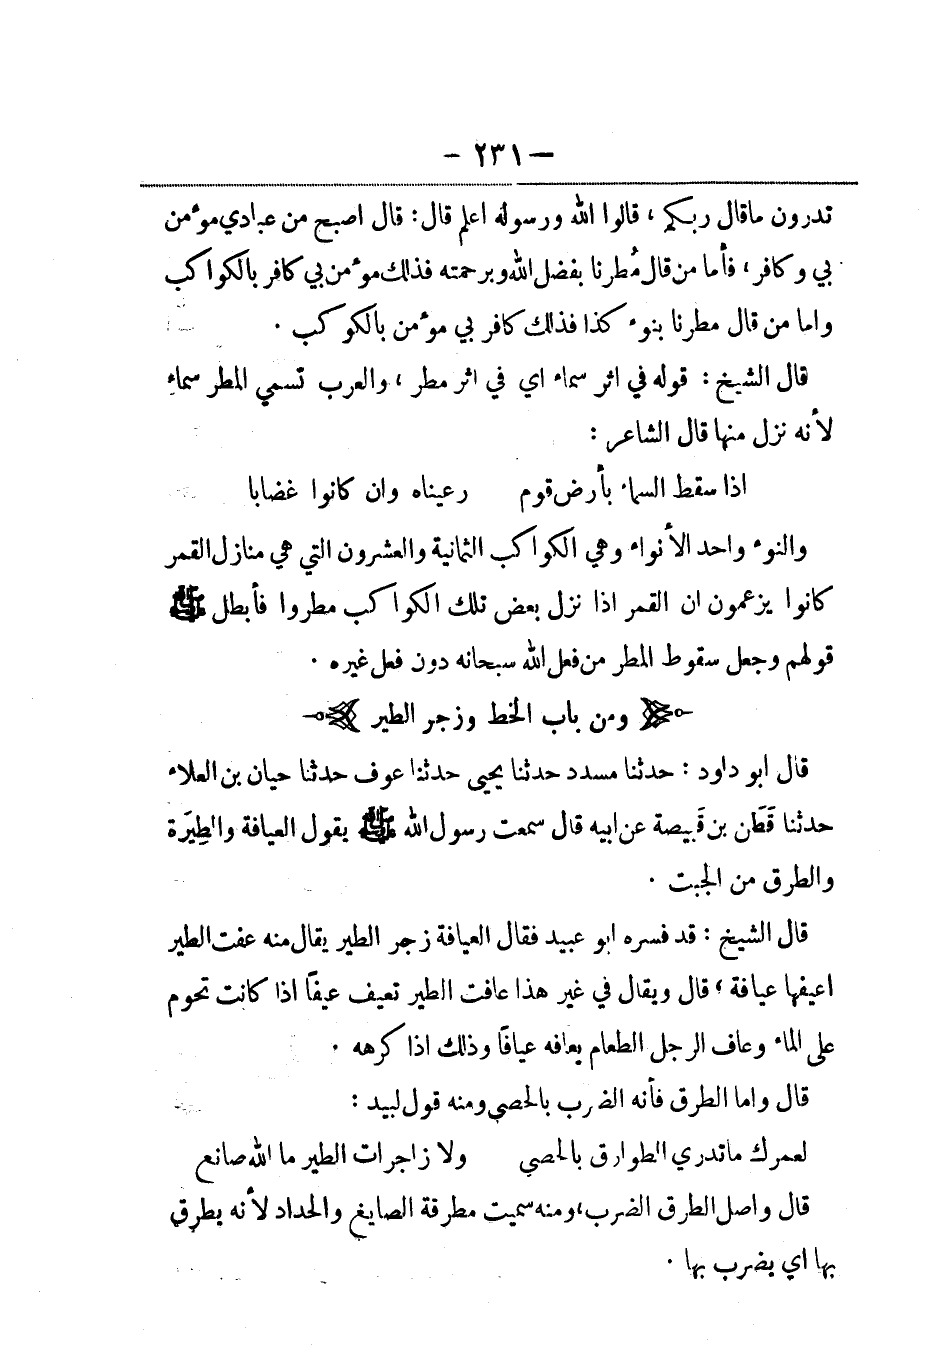 — ٢٣١ —
تدرون ماقال ربكم ، قالوا الله ورسوله اعلم قال: قال اصبح من عبادي موٴمن
بي وكافر، فأما من قال مُطرنا بفضل الله وبرحمته فذلك موٴمن بي كافر بالكواكب
واما من قال مطرنا بنوء كذا فذلك كافر بي موٴمن بالكوكب .
قال الشيخ : قوله في اثر سماء اي في اثر مطر ، والعرب تسمي المطر سماءِ
لأنه نزل منها قال الشاعر :
اذا سقط السماء بأرض قوم رعيناه وان كانوا غضابا
والنوء واحد الأنواء وهي الكواكب الثمانية والعشرون التي هي منازل القمر
كانوا يزعمون ان القمر اذا نزل بعض تلك الكواكب مطروا فأبطل ﷺ
قولهم وجعل سقوط المطر من فعل الله سبحانه دون فعل غيره .
ومن باب الخط وزجر الطير
قال ابو داود : حدثنا مسدد حدثنا يحيى حدثنا عوف حدثنا حيان بن العلاء
حدثنا قَطَن بن قَبيصة عن ابيه قال سمعت رسول الله ﷺ يقول العيافة والطِيَرة
والطرق من الجبت .
قال الشيخ : قد فسره ابو عبيد فقال العيافة زجر الطير يقال منه عفت الطير
اعيفها عيافة ، قال ويقال في غير هذا عافت الطير تعيف عيفًا اذا كانت تحوم
على الماء وعاف الرجل الطعام يعافه عيافًا وذلك اذا كرهه .
قال واما الطرق فأنه الضرب بالحصي ومنه قول لبيد :
لعمرك ماتدري الطوارق بالحصي ولا زاجرات الطير ما الله صانع
قال واصل الطرق الضرب، ومنه سميت مطرقة الصايغ والحداد لأنه يطرق
بها اي يضرب بها .